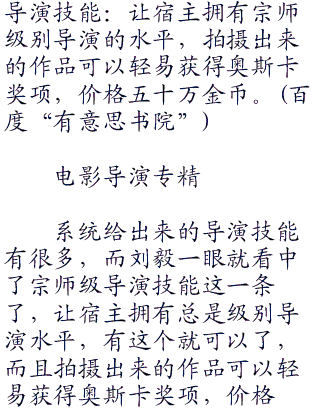 导演技能：让宿主拥有宗师
级别导演的水平，拍摄出来
的作品可以轻易获得奥斯卡
奖项，价格五十万金币。(百
度“有意思书院”)
电影导演专精
系统给出来的导演技能
有很多，而刘毅一眼就看中
了宗师级导演技能这一条
了，让宿主拥有总是级别导
演水平，有这个就可以了，
而且拍摄出来的作品可以轻
易获得奥斯卡奖项，价格